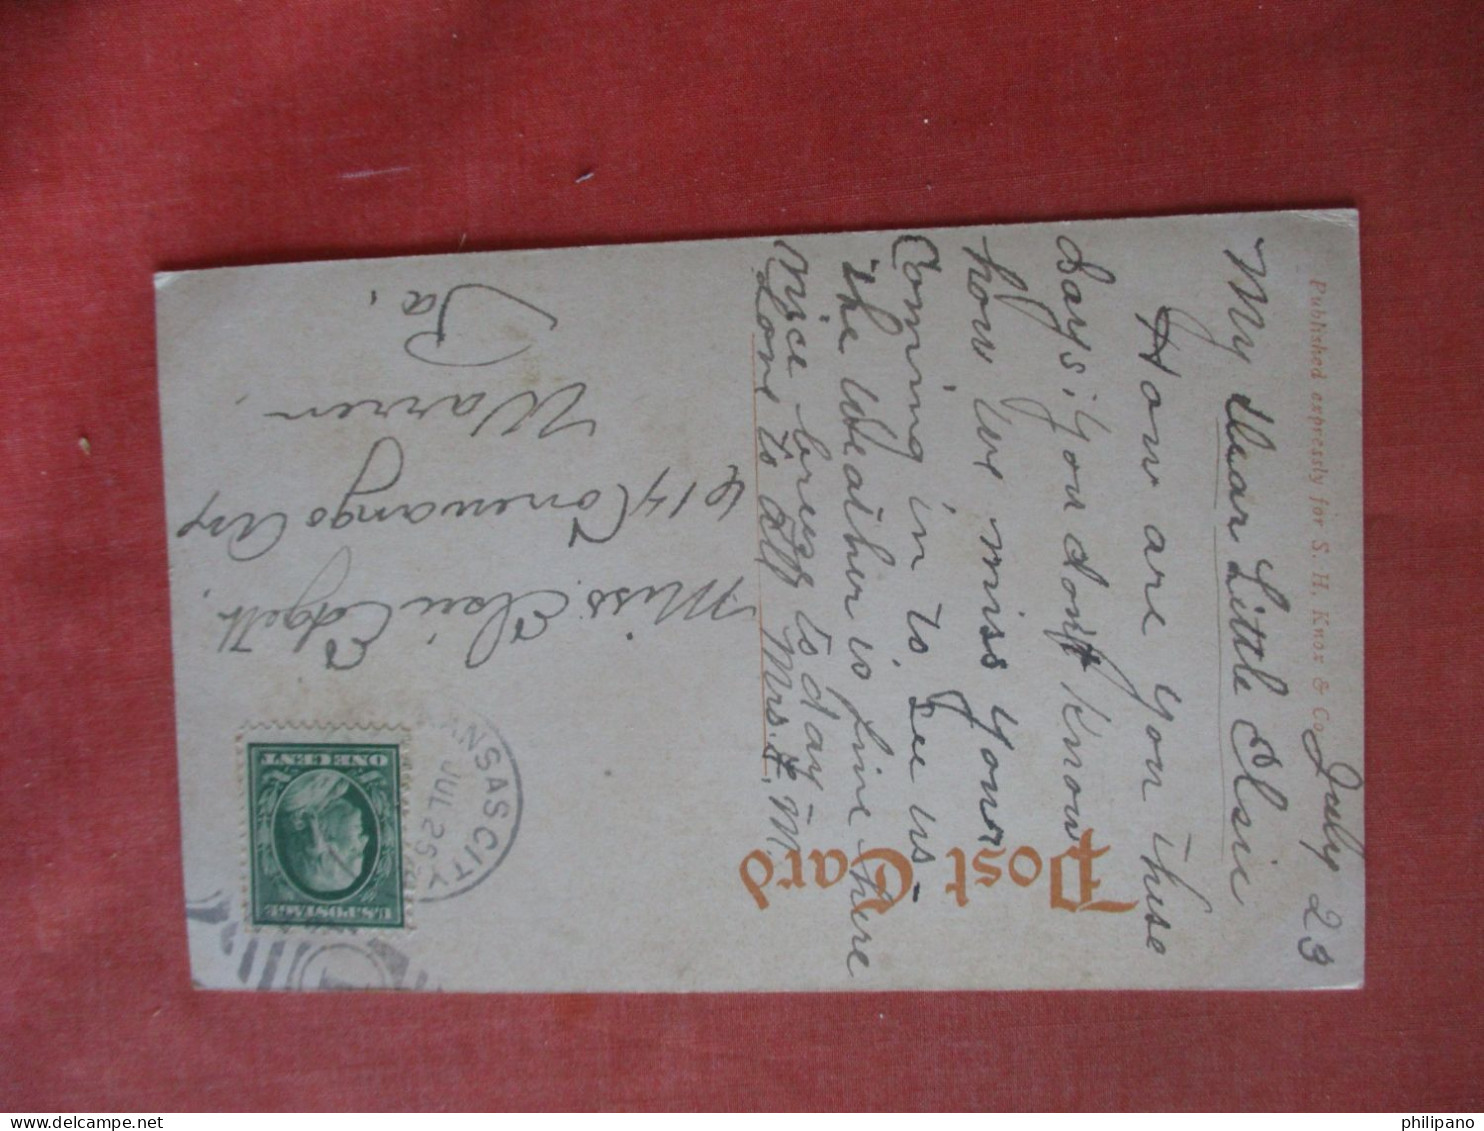 Published expressly for S. H. Knox & Co.
July 23
My Dear Little Elsie
How are you these
days. You don't know
how we miss your
Coming in to see us
The Weather is fine here
nice breeze to day-
Love to all Mrs. F. M.
Post Card
Miss. Elsie Edgett.
614 Conewango Ave
Warren.
Pa.
KANSAS CITY
JUL 25
U.S. POSTAGE
ONE CENT
philipano